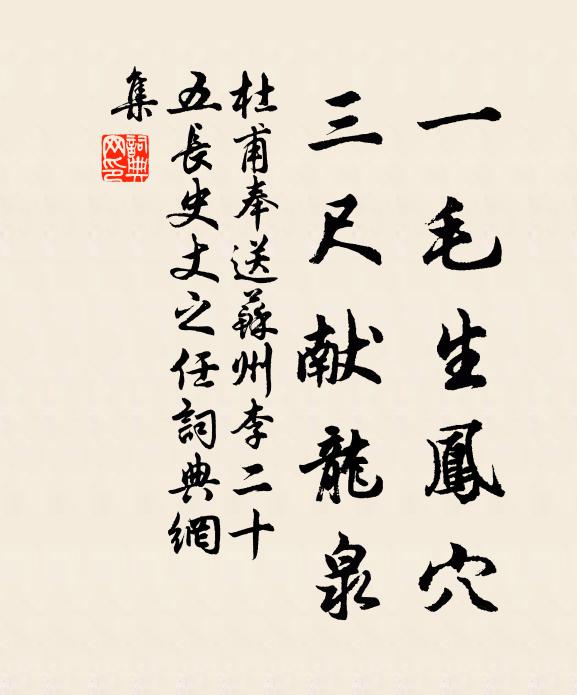 一毛生鳳穴
三尺献龍泉
杜甫奉送蘇州李二十
五長史丈之任詞典網
集
詞典
网印